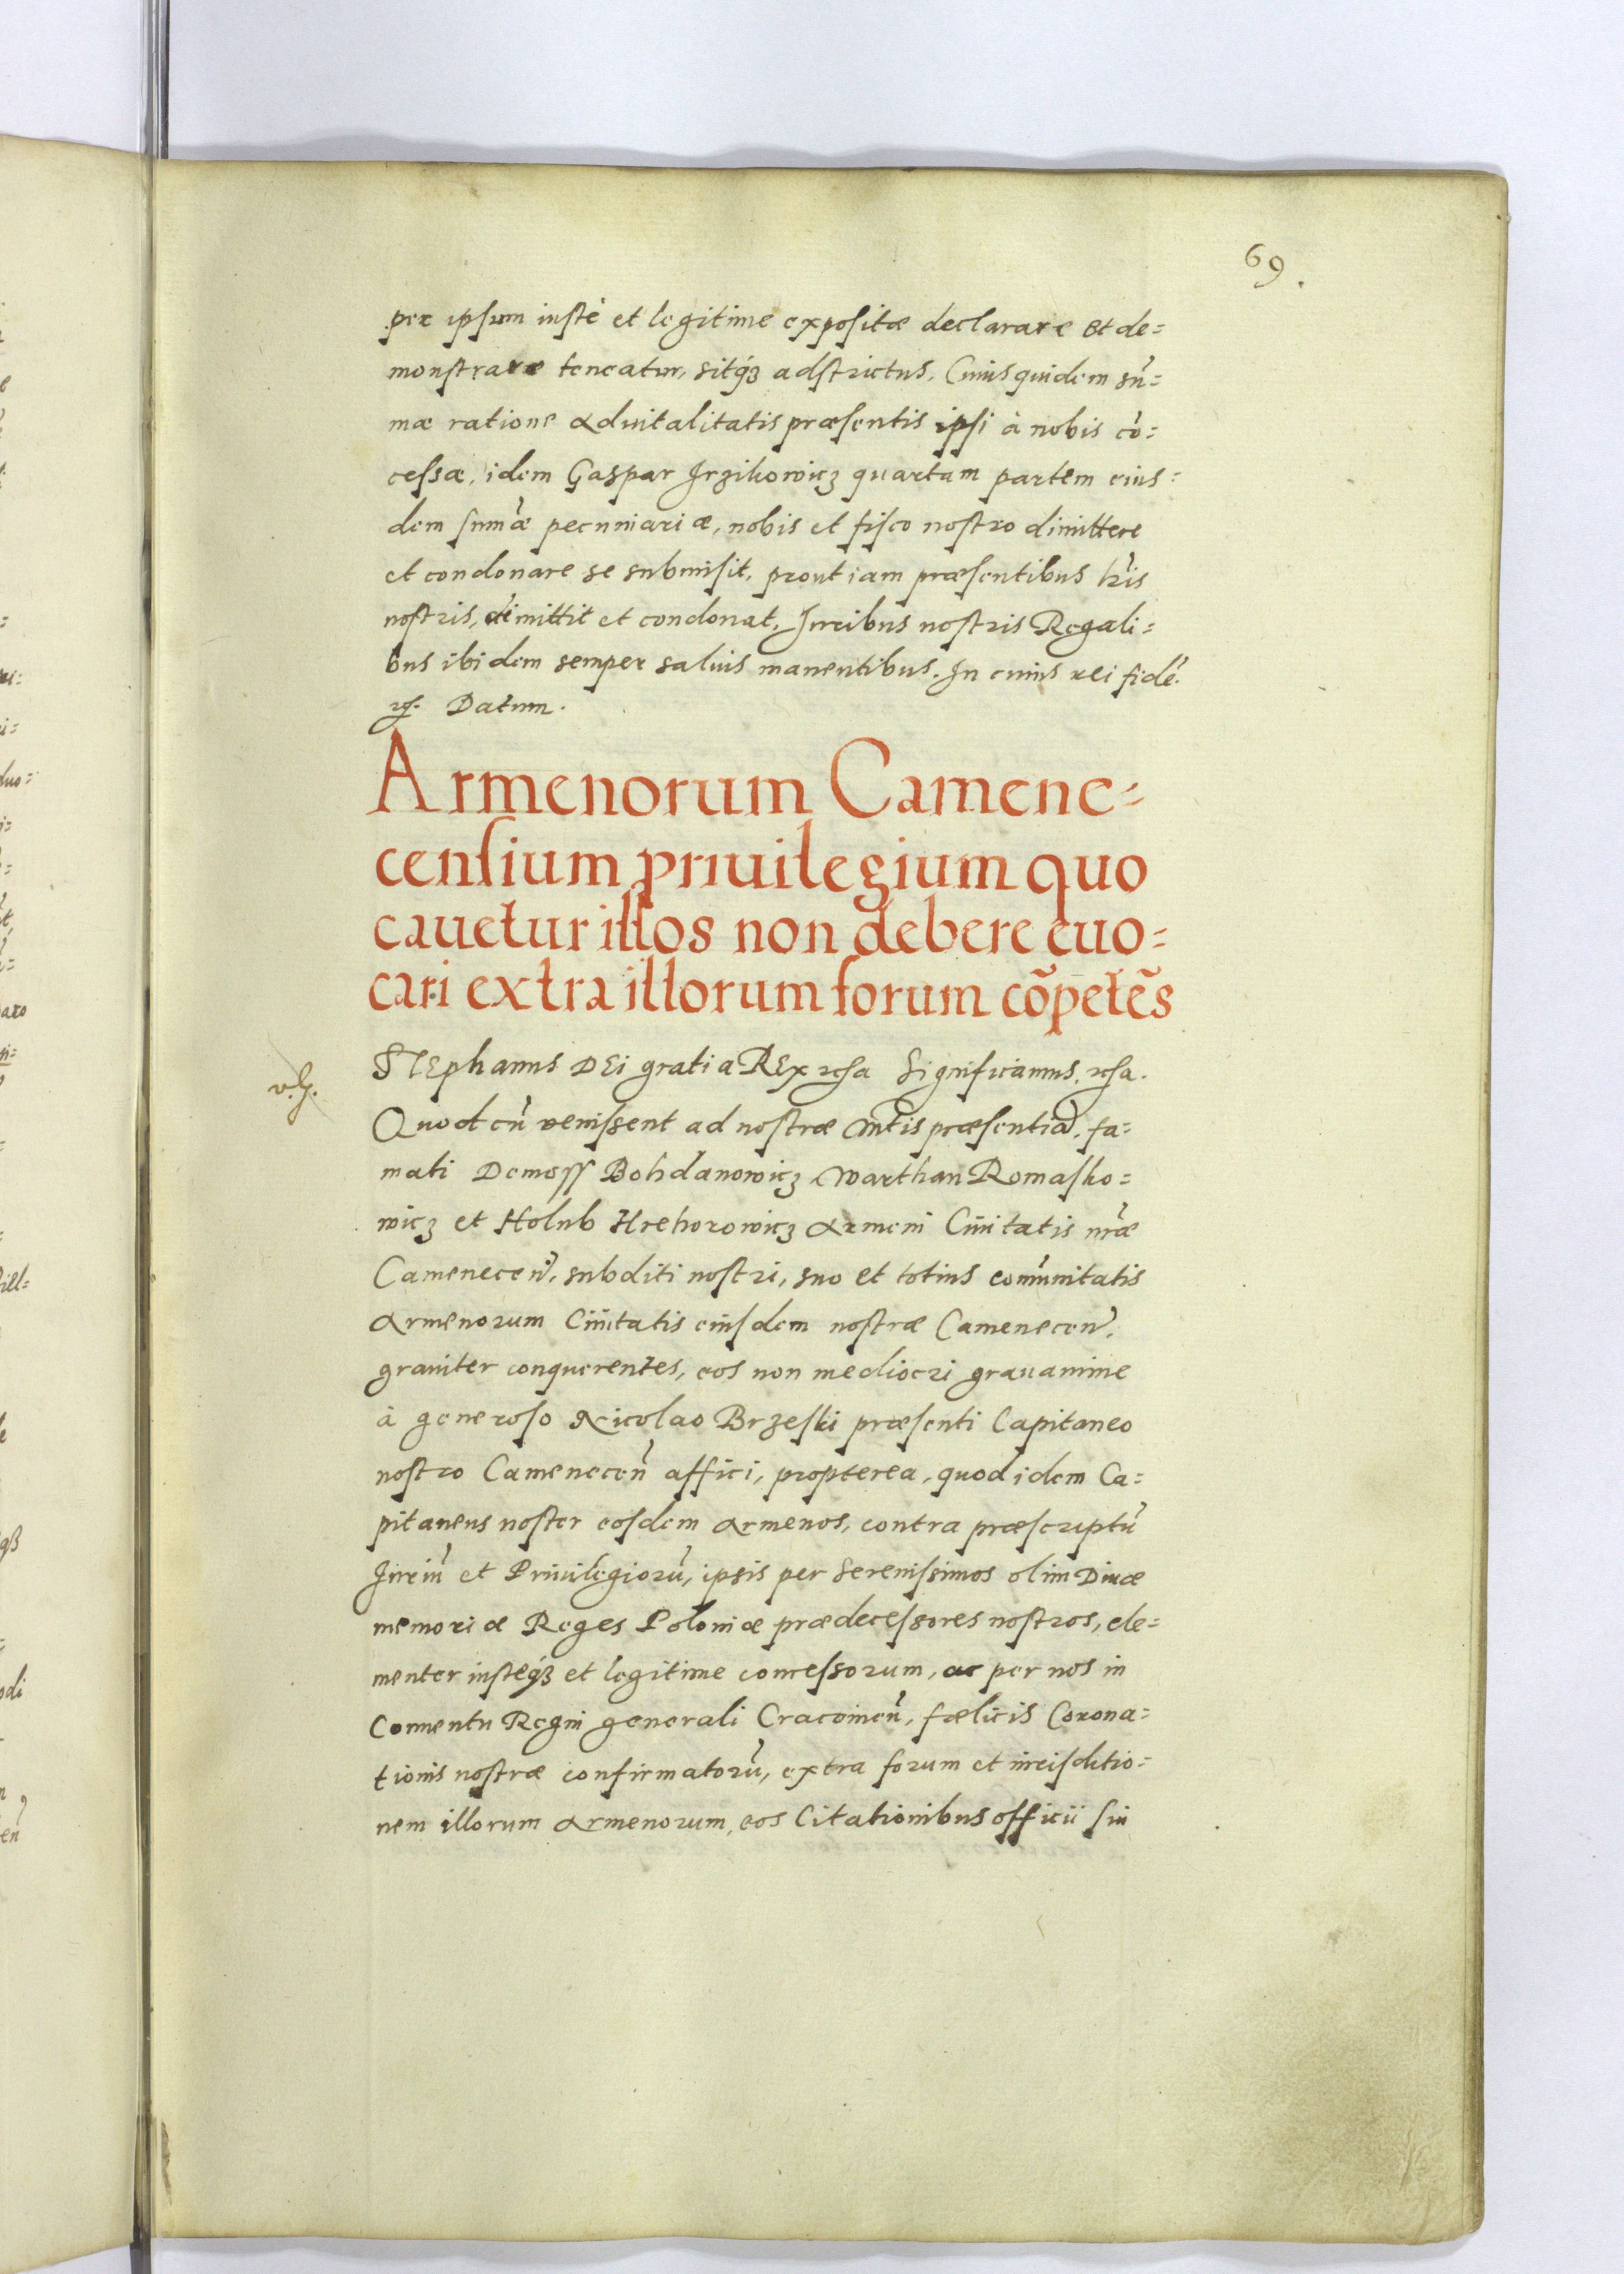 69.
per ipsum iustè et legitime expositæ declarare et de=
monstrare teneatur, sitq́ꝫ adstrictus. Cuius quidem sũ=
mæ ratione aduitalitatis præsentis ipsi à nobis cõ=
cessæ, idem Gaspar Irzikowicz quartam partem eius=
dem sum̃æ pecuniariæ, nobis et fisco nostro dimittere
et condonare se submisit, prout iam præsentibus lr̃is
nostris, dimittit et condonat. Iuribus nostris Regali=
bus ibidem semper saluis manentibus. In cuius rei fidẽ.
Datum.
Armenorum Camene=
censium priuilegium quo
cauetur illos non debere euo=
cari extra illorum forum cõpetẽs
STEphanus DEi gratia REx Significamus.
Quod cũ venissent ad nostræ Mtis præsentiã, fa=
mati Bohdanowicz Warthan Romasko=
wicz et Holub Hrehorowicz Armeni Ciuitatis nr̃æ
Camenecen̄, subditi nostri, suo et totius com̃unitatis
Armenorum Ciuitatis eiusdem nostræ Camenecen̄,
grauiter conquerentes, eos non mediocri grauamine
à generoso Nicolao Brzeski præsenti Capitaneo
nostro Camenecen̄ affici, propterea, quod idem Ca=
pitaneus noster eosdem Armenos, contra præscriptũ
Iuriũ et Priuilegiorũ, ipsis per Serenissimos olim Diuæ
memoriæ Reges Poloniæ prædecessores nostros, cle=
menter iusteq́ꝫ et legitime concessorum, ac per nos in
Conuentu Regni generali Cracouien̄, fælicis Corona=
tionis nostræ confirmatorũ, extra forum et iurisditio=
nem illorum Armenorum, eos Citationibus officii sui